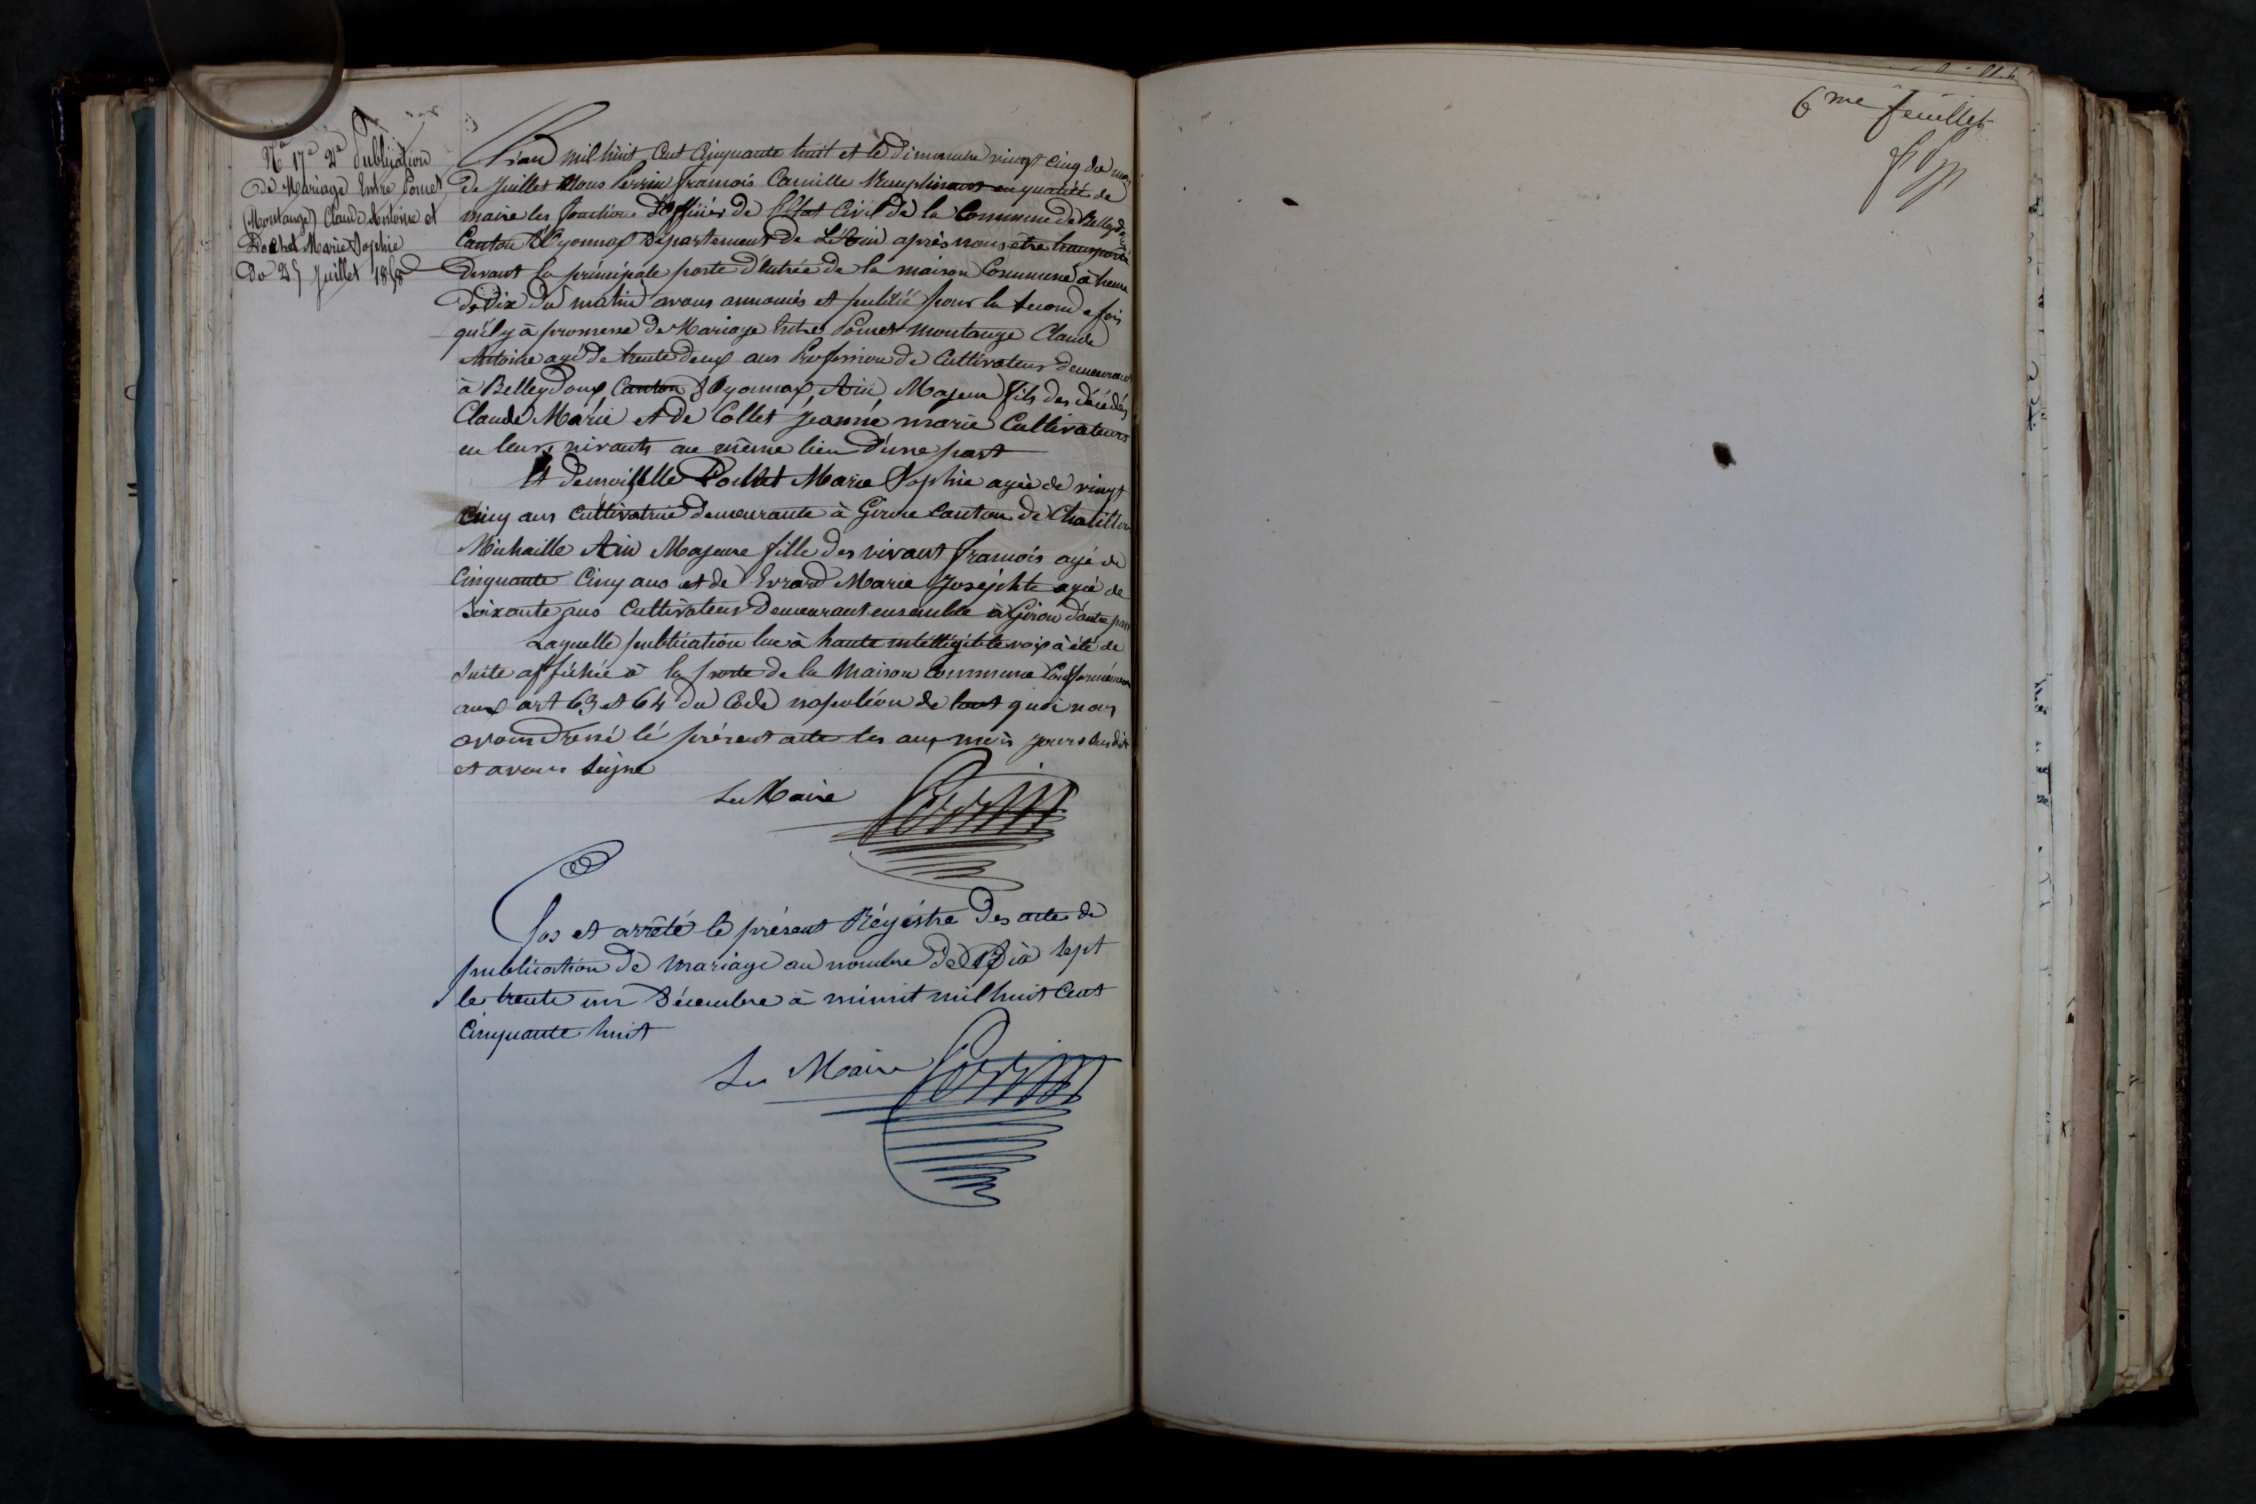 N° 17e 2e Publication
de Mariage Entre Poncet
(Montange) Claude Antoine et
Pochet Marie Sophie
Do 25 Juillet 1858
L'an mil huit Cent Cinquante huit et le dimanche vingt cinq du mois
de Juillet Nous Perrin François Camille Remplissant en qualité de
maire les fonctions d'officier de l'état Civil de la Commune de Belleydoux
Canton d'Oyonnax Département de L'Ain après nous être transporté
devant la principale porte d'entrée de la maison Commune à heure
de Dix du matin avons annoncés et publié pour la seconde fois
qu'il y à promesse de Mariage Entre Poncet Montange Claude
Antoine agé de trente deux ans Profession de Cultivateur demeurant
à Belleydoux Canton d'Oyonnax Ain, Majeur fils des décédés
Claude Marie et de Collet Jeanne marie Cultivateurs
en leurs vivants au même lieu d'une part
Et demoiselle Pochet Marie Sophie agée de vingt
cinq ans Cultivatrice demeurante à Giron Canton de Chatillon
Michaille Ain Majeure fille des vivant françois agé de
Cinquante Cinq ans et de Evrard Marie Josephte agée de
Soixante ans Cultivateur Demeurant ensemble à Giron d'autre part
Laquelle publication lue à haute intelligible voix à été de
suite affichée à la porte de la Maison Commune Conformément
aux art 63 et 64 du Code napoléon de tout quoi nous
avons dressé le présent acte les an, mois jours susdits
et avons signé
Le Maire Perrin
Clos et arrêté le présent Régistre Des acte de
publication de mariage au nombre de Dix sept
le trente un Décembre à minuit mil huit Cent
Cinquante huit
Le Maire Perrin
6me feuillet